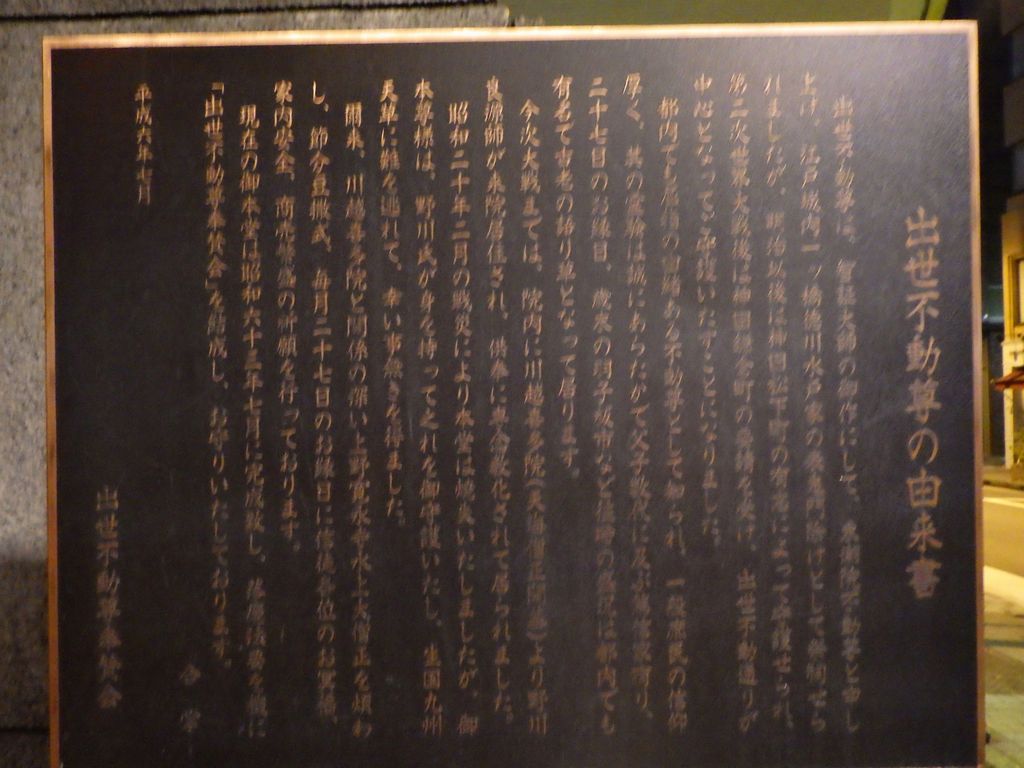 出世不動尊の由来書
出世不動尊は、智証大師の御作にして、不動尊と申し
上げ、江戸城内一ッ橋徳川水戸家の けとして祭祠せら
れましたが、明治以後は神田松下町の有志によって奉讃せられ、
第二次世界大戦後は神田 町の 、出世不動通りが
中心となってご守護いたすことになりました。
都内でも屈指の由緒ある不動尊として知られ、一般庶民の信仰
厚く、其の霊験は誠にあらたかで父子数代に及ぶ 有り、
二十七日のお縁日、歳末の羽子板市など は都内でも
有名で古老の語り草となって居ります。
今次大戦までは、院内に川越喜多院(天海僧正開基)より野川
良源師が来院居住され、供奉に専念教化されて居られました。
昭和二十年二月の戦災により本堂は焼失いたしましたが、御
本尊様は、野川氏が身を持って之れを御守護いたし、生国九州
天草に難を逃れて、幸い事無きを得ました。
爾来、川越喜多院と関係の深い上野寛永寺水上大僧正を煩わ
し、節分豆撒式、毎月二十七日のお縁日に信徒各位のお
家内安全、商売繁盛の祈願を行っております。
現在の御本堂は昭和六十三年七月に完成致し、 に
「出世不動尊奉賛会」を結成し、お守りいたしております。
合掌
平成六年 月
出世不動尊奉賛会